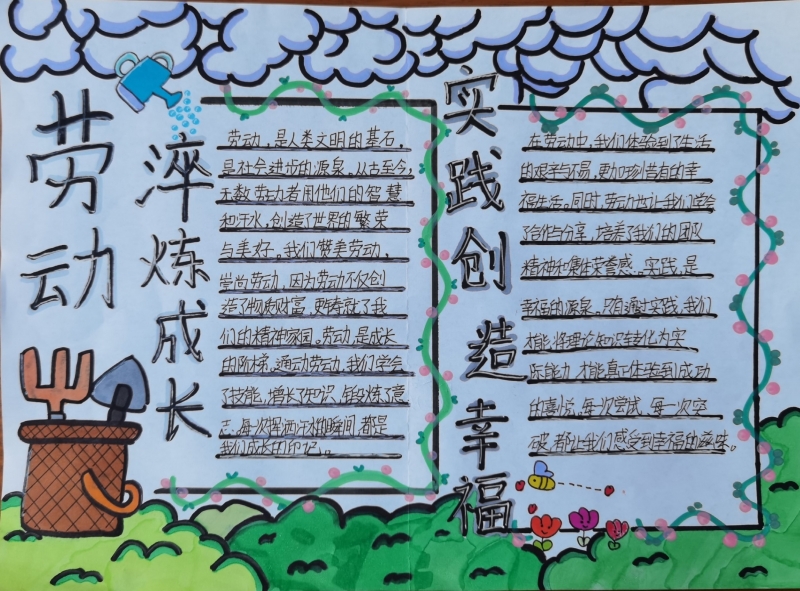 劳动
淬炼成长
劳动，是人类文明的基石，
是社会进步的源泉。从古至今，
无数劳动者用他们的智慧
和汗水，创造了世界的繁荣
与美好。我们赞美劳动，
崇尚劳动，因为劳动不仅创
造了物质财富，更铸就了我
们的精神家园。劳动，是成长
的阶梯，通过劳动，我们学会
了技能，增长了知识，锻炼了意
志。每次挥洒汗水的瞬间，都是
我们成长的印记。
实践创造幸福
在劳动中，我们体验到了生活
的艰辛与不易，更加珍惜有的幸
福生活。同时，劳动也让我们学会
了合作与分享，培养了我们的团队
精神和集体荣誉感。实践，是
幸福的源泉。只有通过实践，我们
才能将理论知识转化为实
际能力，才能真正体验到成功
的喜悦，每次尝试，每一次突
破，都让我们感受到幸福的滋味。